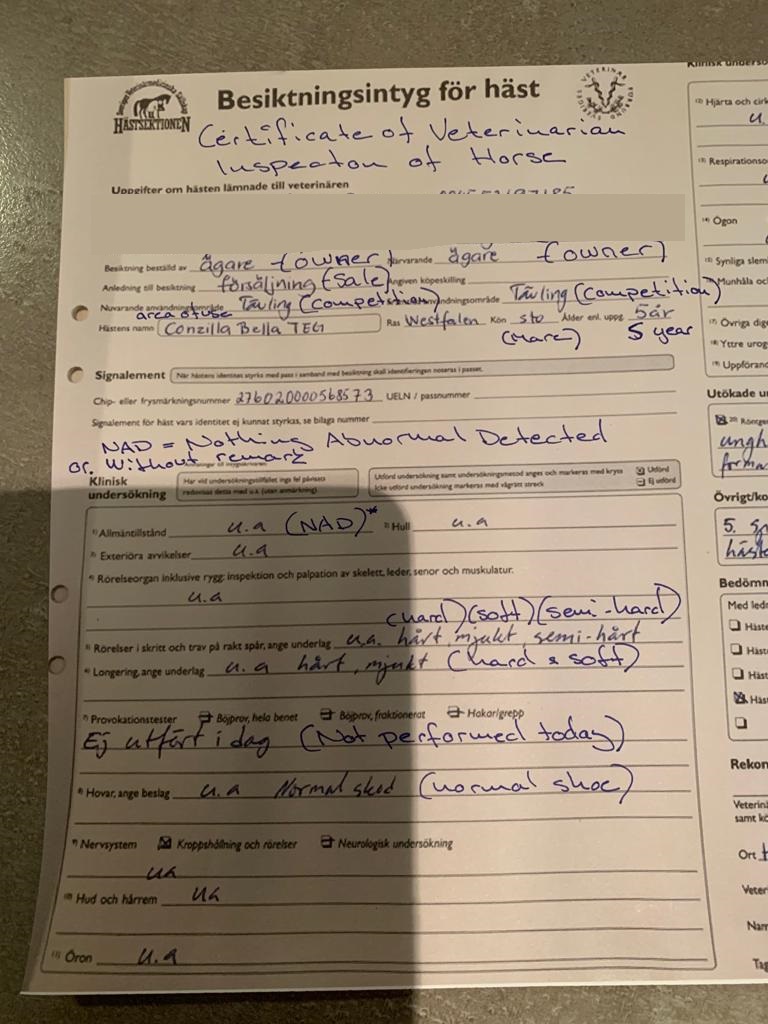 HÄSTSEKTIONEN
Besiktningsintyg för häst
Certificate of Veterinarian
Inspecton of Horse
Uppgifter om hästen lämnade till veterinären
Besiktning beställd av ägare (owner) Närvarande ägare (owner)
Anledning till besiktning försäljning (Sale) Angiven köpeskilling
Nuvarande användningsområde Tävling (competition) användningsområde Tävling (competition)
area of use
Hästens namn Conzilla Bella TEG Ras Westfalen Kön sto Ålder enl. uppg 5år
(Mare) 5 year
Signalement När hästens identitet styrks med pass i samband med besiktning skall identifieringen noteras i passet.
Chip- eller frysmärkningsnummer 276020000568573 UELN / passnummer
Signalement för häst vars identitet ej kunnat styrkas, se bilaga nummer
NAD = Nothing Abnormal Detected
or. Without remark
Klinisk undersökning
Har vid undersökningstillfället inga fel påvisats redovisas detta med u.a (utan anmärkning).
Utförd undersökning samt undersökningsmetod anges och markeras med kryss
Icke utförd undersökning markeras med vågrätt streck
Utförd
Ej utförd
1) Allmäntillstånd u.a (NAD)* 2) Hull u.a
3) Exteriöra avvikelser u.a
4) Rörelseorgan inklusive rygg: inspektion och palpation av skelett, leder, senor och muskulatur.
u.a
(hard) (soft) (semi-hard)
5) Rörelser i skritt och trav på rakt spår, ange underlag u.a. hårt, mjukt, semi-hårt
6) Longering, ange underlag u.a hårt, mjukt (hard & soft)
7) Provokationstester Böjprov, hela benet Böjprov, fraktionerat Hakar/grepp
Ej utfört i dag (Not performed today)
8) Hovar, ange beslag u.a Normal skod (normal shoe)
9) Nervsystem Kroppshållning och rörelser Neurologisk undersökning
ua
10) Hud och hårrem ua
11) Öron u.a
Klinisk underso
12) Hjärta och cirk
u.
13) Respirationso
14) Ögon
15) Synliga slem
Munhåla oc
17) Övriga dig
18) Yttre urog
19) Uppföran
Utökade u
20) Röntge
ungh
forma
Övrigt/ko
5. sp
häste
Bedömn
Med ledn
Häste
Häst
Häst
Häs
Rekon
Veterinä
samt kö
Ort
Veter
Nam
Tag